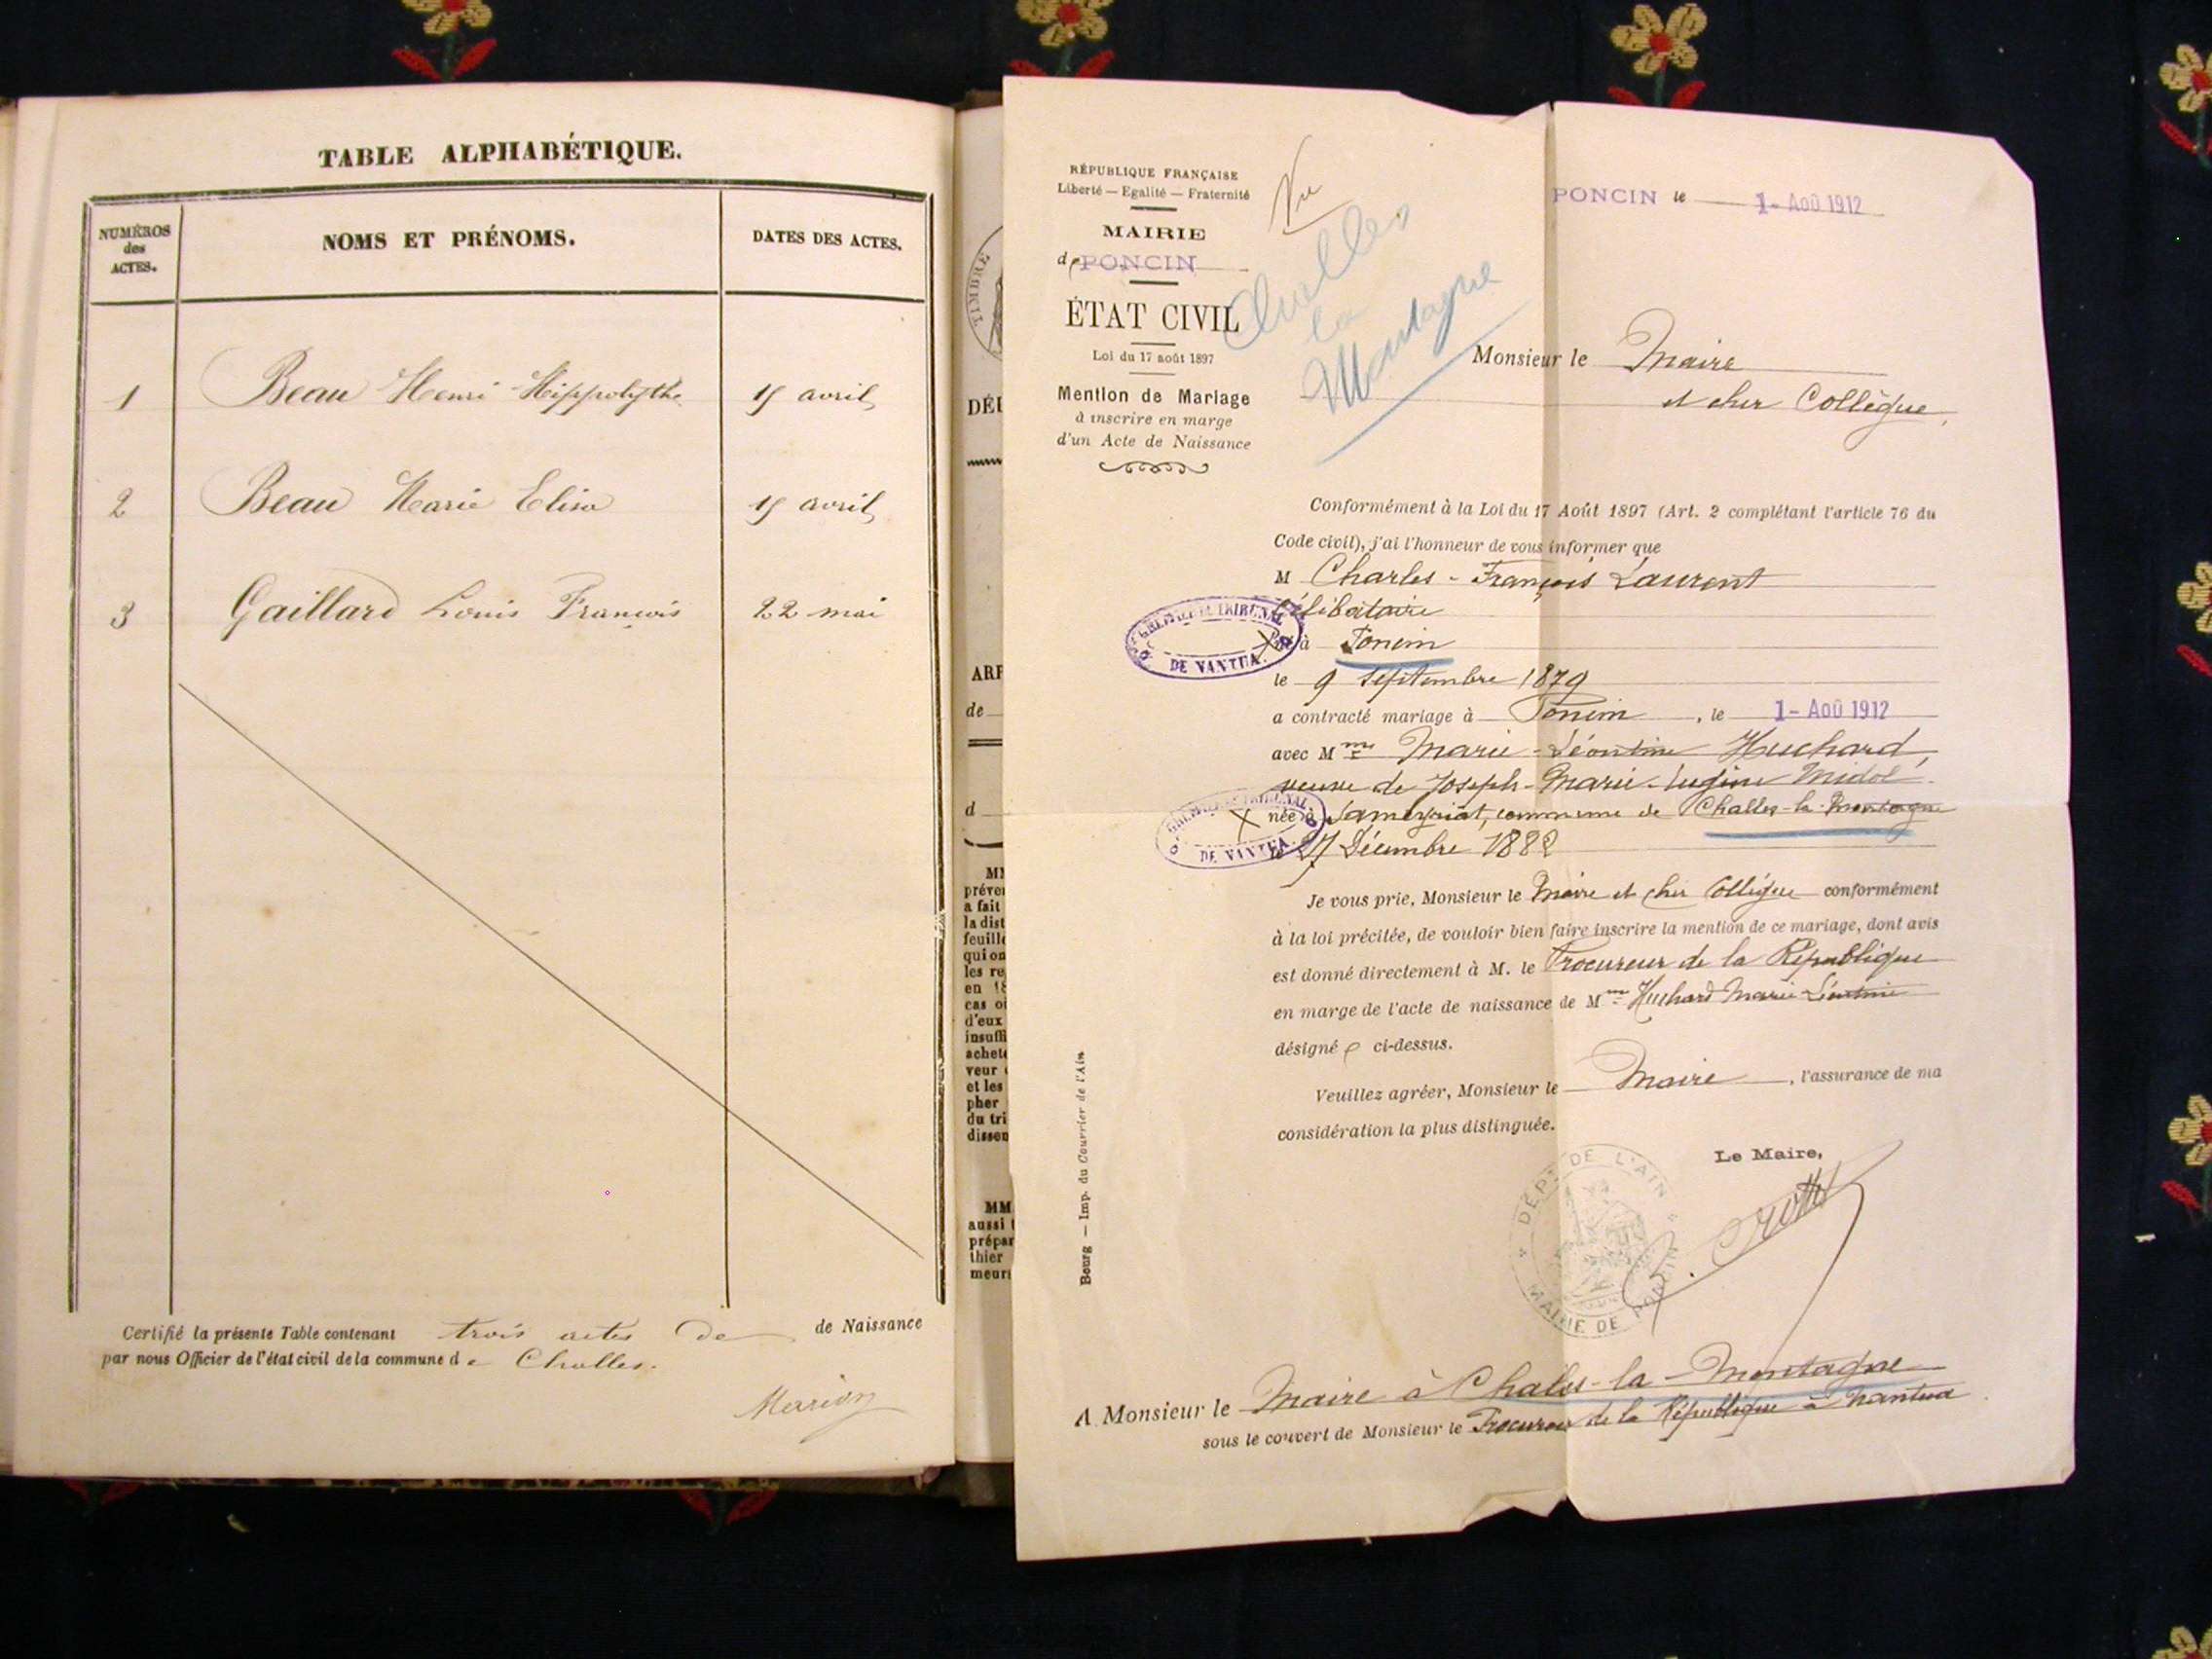 TABLE ALPHABÉTIQUE.
NUMÉROS des ACTES.
NOMS ET PRÉNOMS.
DATES DES ACTES.
1 Beau Henri Hippolythe 15 avril
2 Beau Marie Elisa 15 avril
3 Gaillard Louis François 22 mai
Certifié la présente Table contenant trois actes de de Naissance
par nous Officier de l'état civil de la commune de Challes.
Marion
TIMBRE
DÉP
ARR
de
d
MM
préve
a fait
la dist
feuille
qui on
les re
en 18
cas où
d'eux
insuffi
achete
veur
et les
pher
du tri
dissen
MM
aussi
prépar
thier
meur
RÉPUBLIQUE FRANÇAISE
Liberté — Egalité — Fraternité
MAIRIE
de PONCIN
ÉTAT CIVIL
Loi du 17 août 1897
Mention de Mariage
à inscrire en marge
d'un Acte de Naissance
Vu
Challes
la
Montagne
PONCIN le 1 - Aoû 1912
Monsieur le Maire
et cher Collègue,
Conformément à la Loi du 17 Août 1897 (Art. 2 complétant l'article 76 du
Code civil), j'ai l'honneur de vous informer que
M Charles - François Laurent
Célibataire
né à Poncin
le 9 Septembre 1879
a contracté mariage à Poncin, le 1 - Aoû 1912
avec Mme Marie - Léontine Huchard,
veuve de Joseph - Marie - Eugène Midol
née à commune de Challes-la-Montagne
le 27 Décembre 1882
GREFFE DU TRIBUNAL DE NANTUA
GREFFE DU TRIBUNAL DE NANTUA
Je vous prie, Monsieur le Maire et cher Collègue conformément
à la loi précitée, de vouloir bien faire inscrire la mention de ce mariage, dont avis
est donné directement à M. le Procureur de la République
en marge de l'acte de naissance de Mme Huchard Marie Léontine
désignée ci-dessus.
Veuillez agréer, Monsieur le Maire, l'assurance de ma
considération la plus distinguée.
Le Maire,
DÉPT DE L'AIN
MAIRIE DE PONCIN
Bourg — Imp. du Courrier de l'Ain
A Monsieur le Maire à Chales-la-Montagne
sous le couvert de Monsieur le Procureur de la République à Nantua